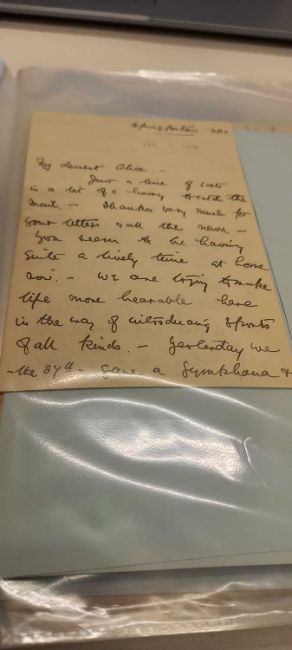 My dearest Alice. -
Just a line of sorts
in a bit of a hurry to catch the
mail. - Thanks very much for
your letters & all the news. -
You seem to be having
quite a lively time at home
now. - We are trying to make
life more bearable here
in the way of introducing sports
of all kinds. - Yesterday we
- the 87th - gave a Gymkhana &